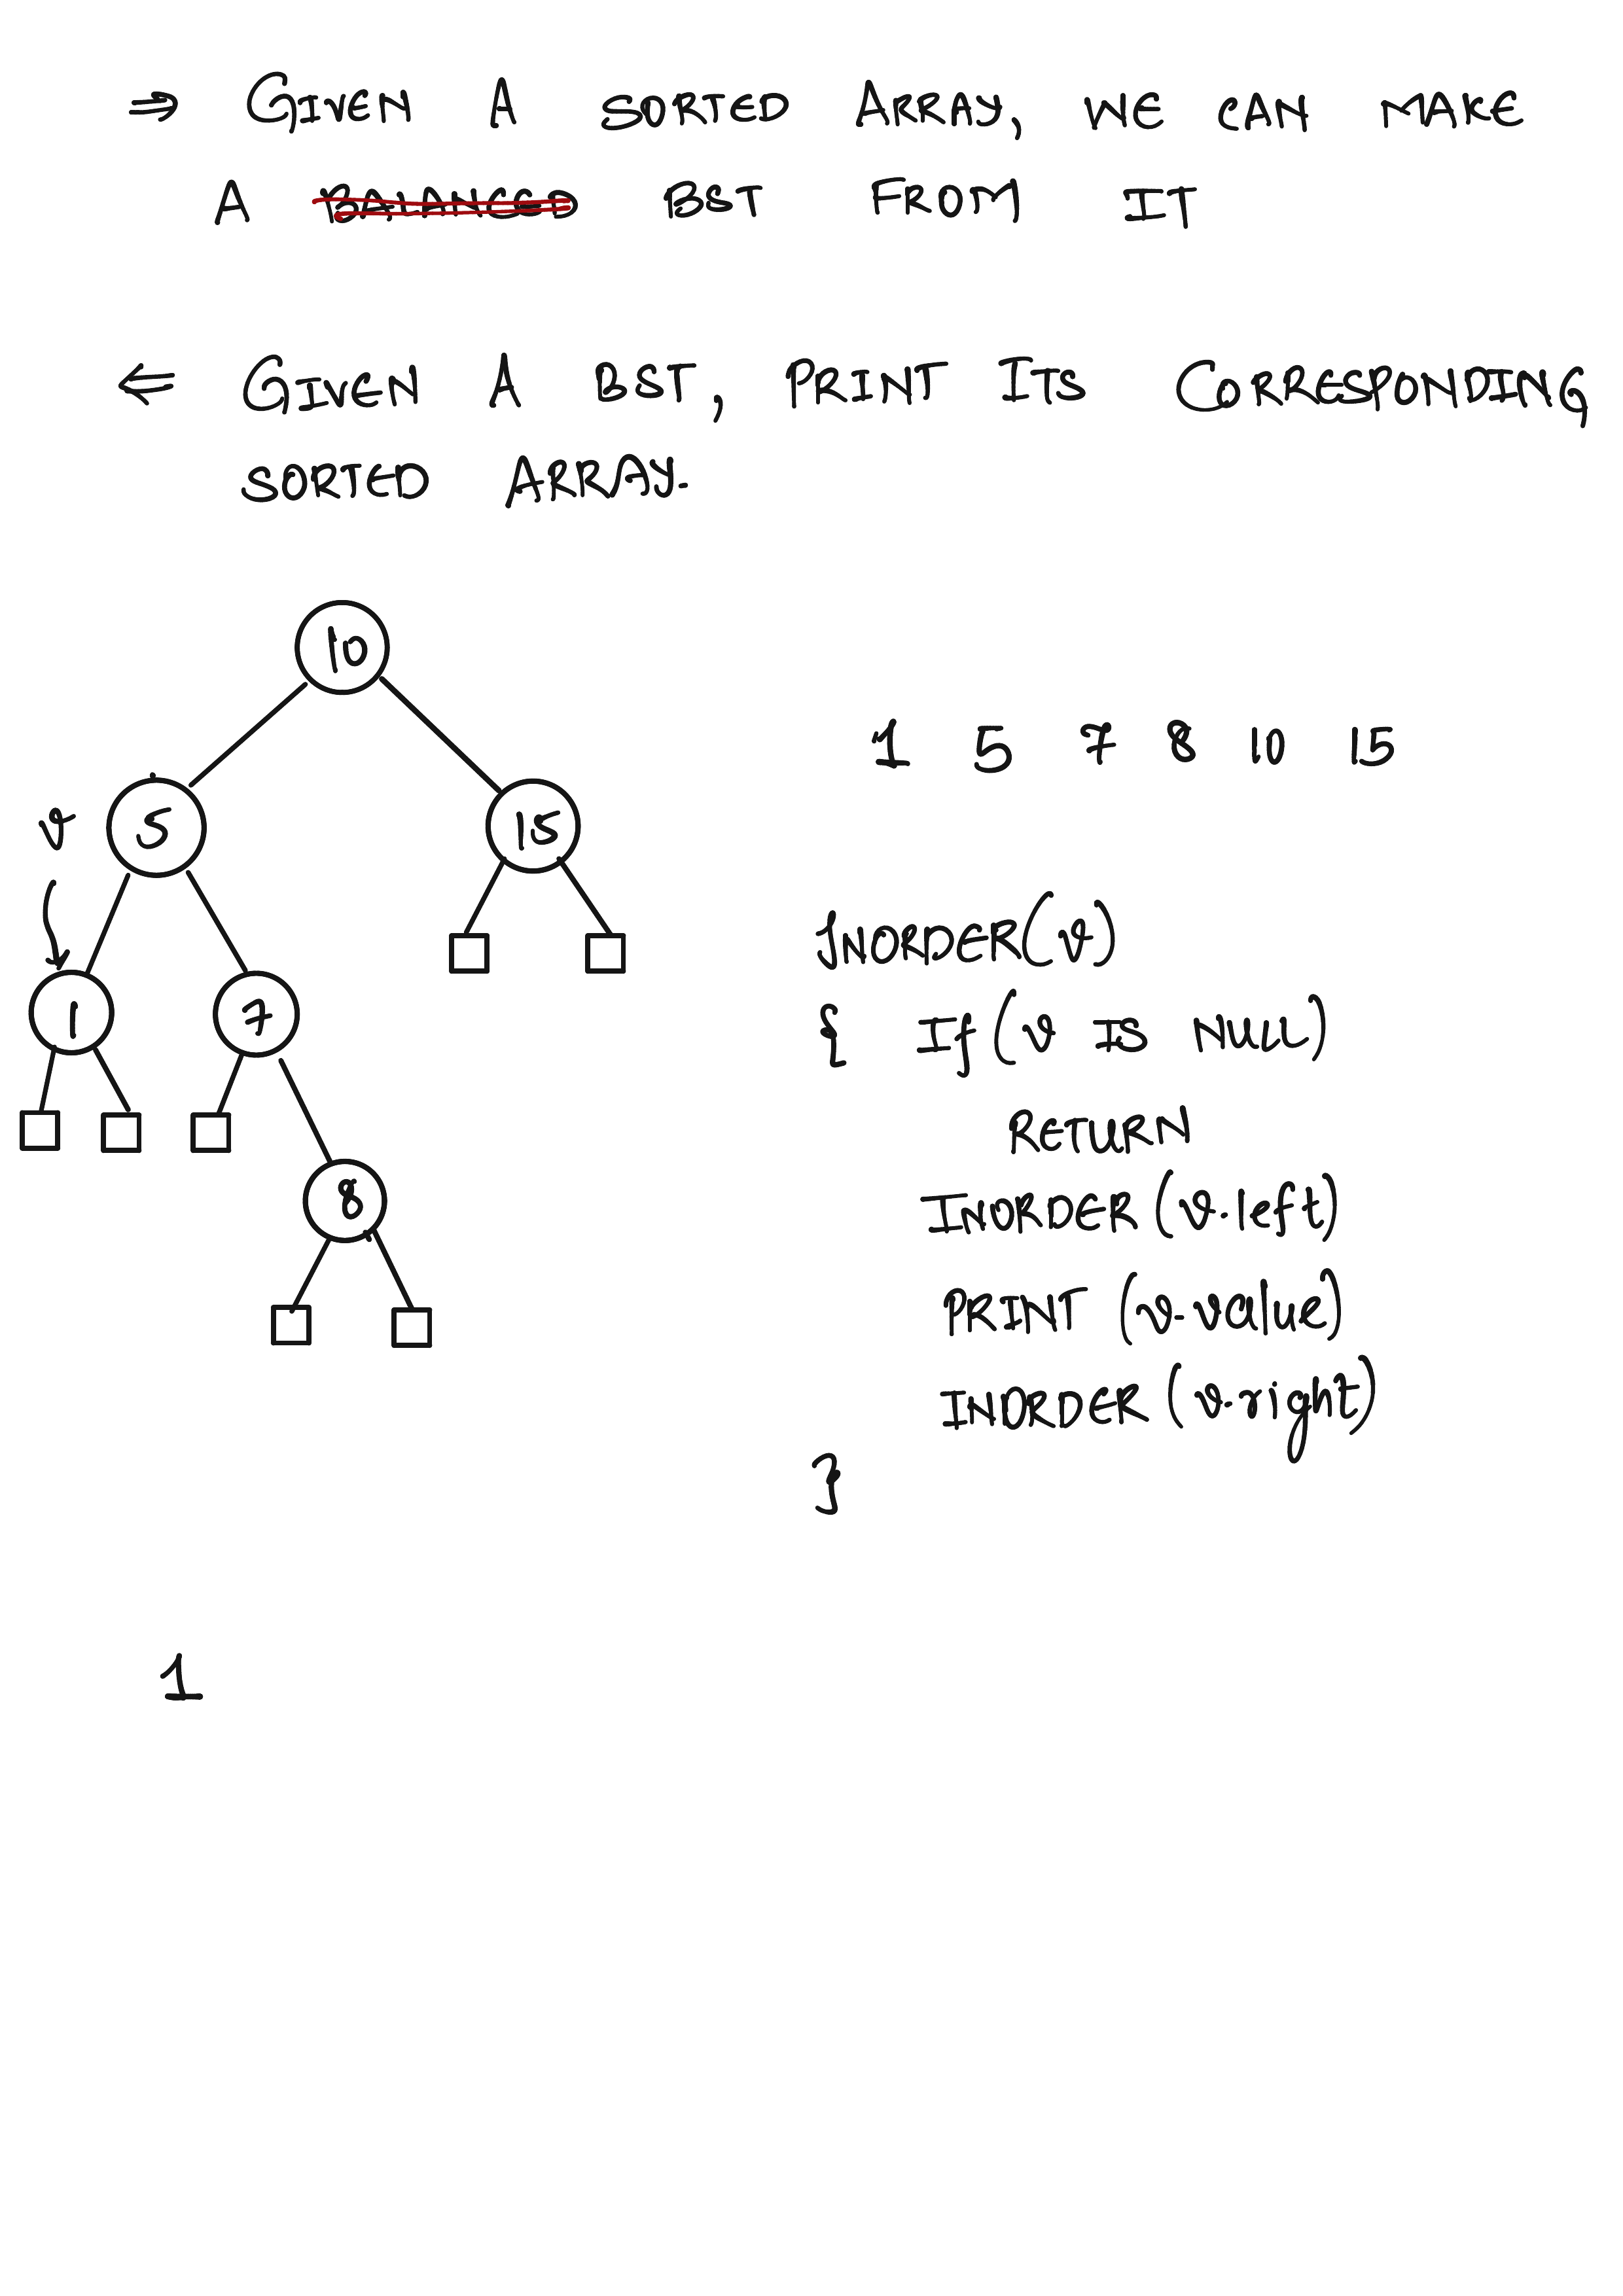 ⇒ GIVEN A SORTED ARRAY, WE CAN MAKE
A BALANCED BST FROM IT
⇐ GIVEN A BST, PRINT ITS CORRESPONDING
SORTED ARRAY.
10
1 5 7 8 10 15
v 5 15
INORDER(v)
1 7
{ If (v IS NULL)
RETURN
8
INORDER (v.left)
PRINT (v.value)
INORDER (v.right)
}
1